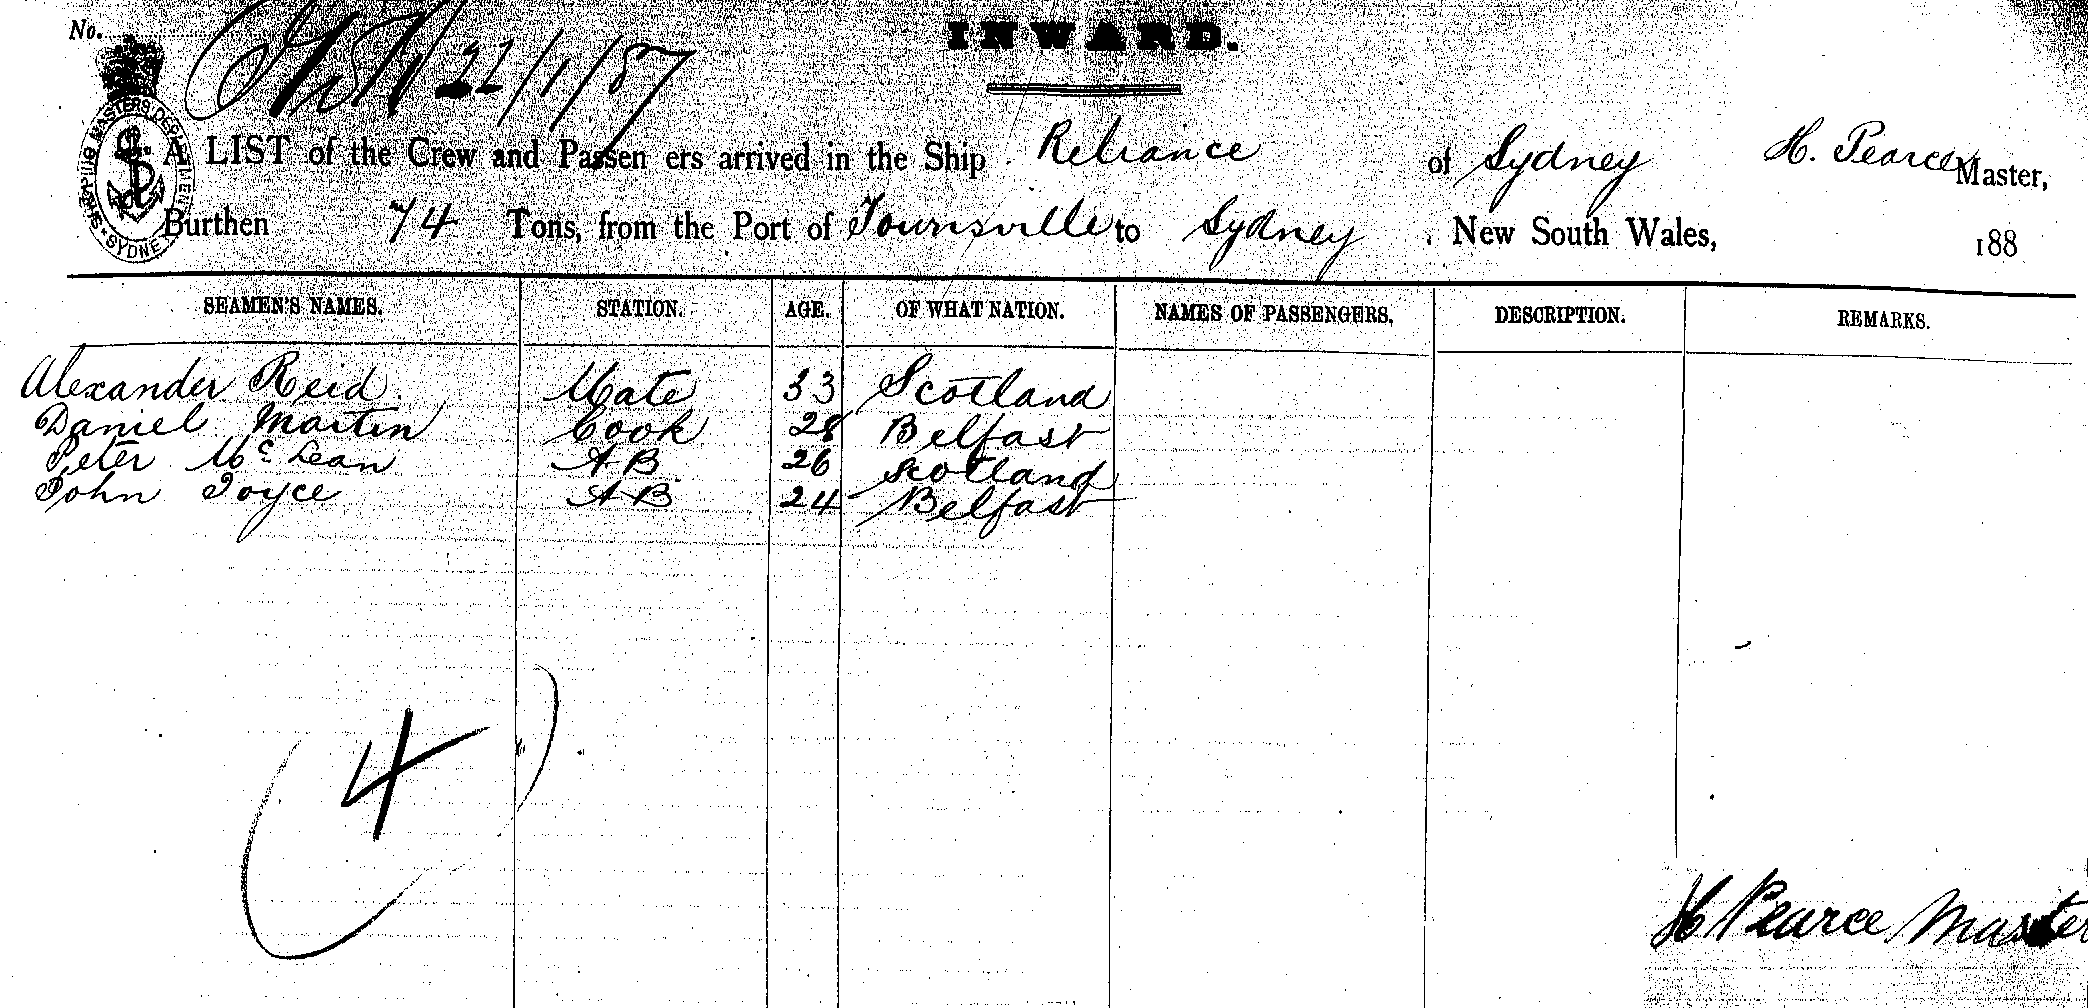 No.
22/1/87
INWARD.
SHIPPING MASTERS DEPARTMENT SYDNEY
A LIST of the Crew and Passen ers arrived in the Ship Reliance of Sydney H. Pearce Master,
Burthen 74 Tons, from the Port of Townsville to Sydney, New South Wales, 188
SEAMEN'S NAMES. STATION. AGE. OF WHAT NATION. NAMES OF PASSENGERS. DESCRIPTION. REMARKS.
Alexander Reid Mate 33 Scotland
Daniel Martin Cook 28 Belfast
Peter McLean AB 26 Scotland
John Joyce AB 24 Belfast
4
H Pearce Master